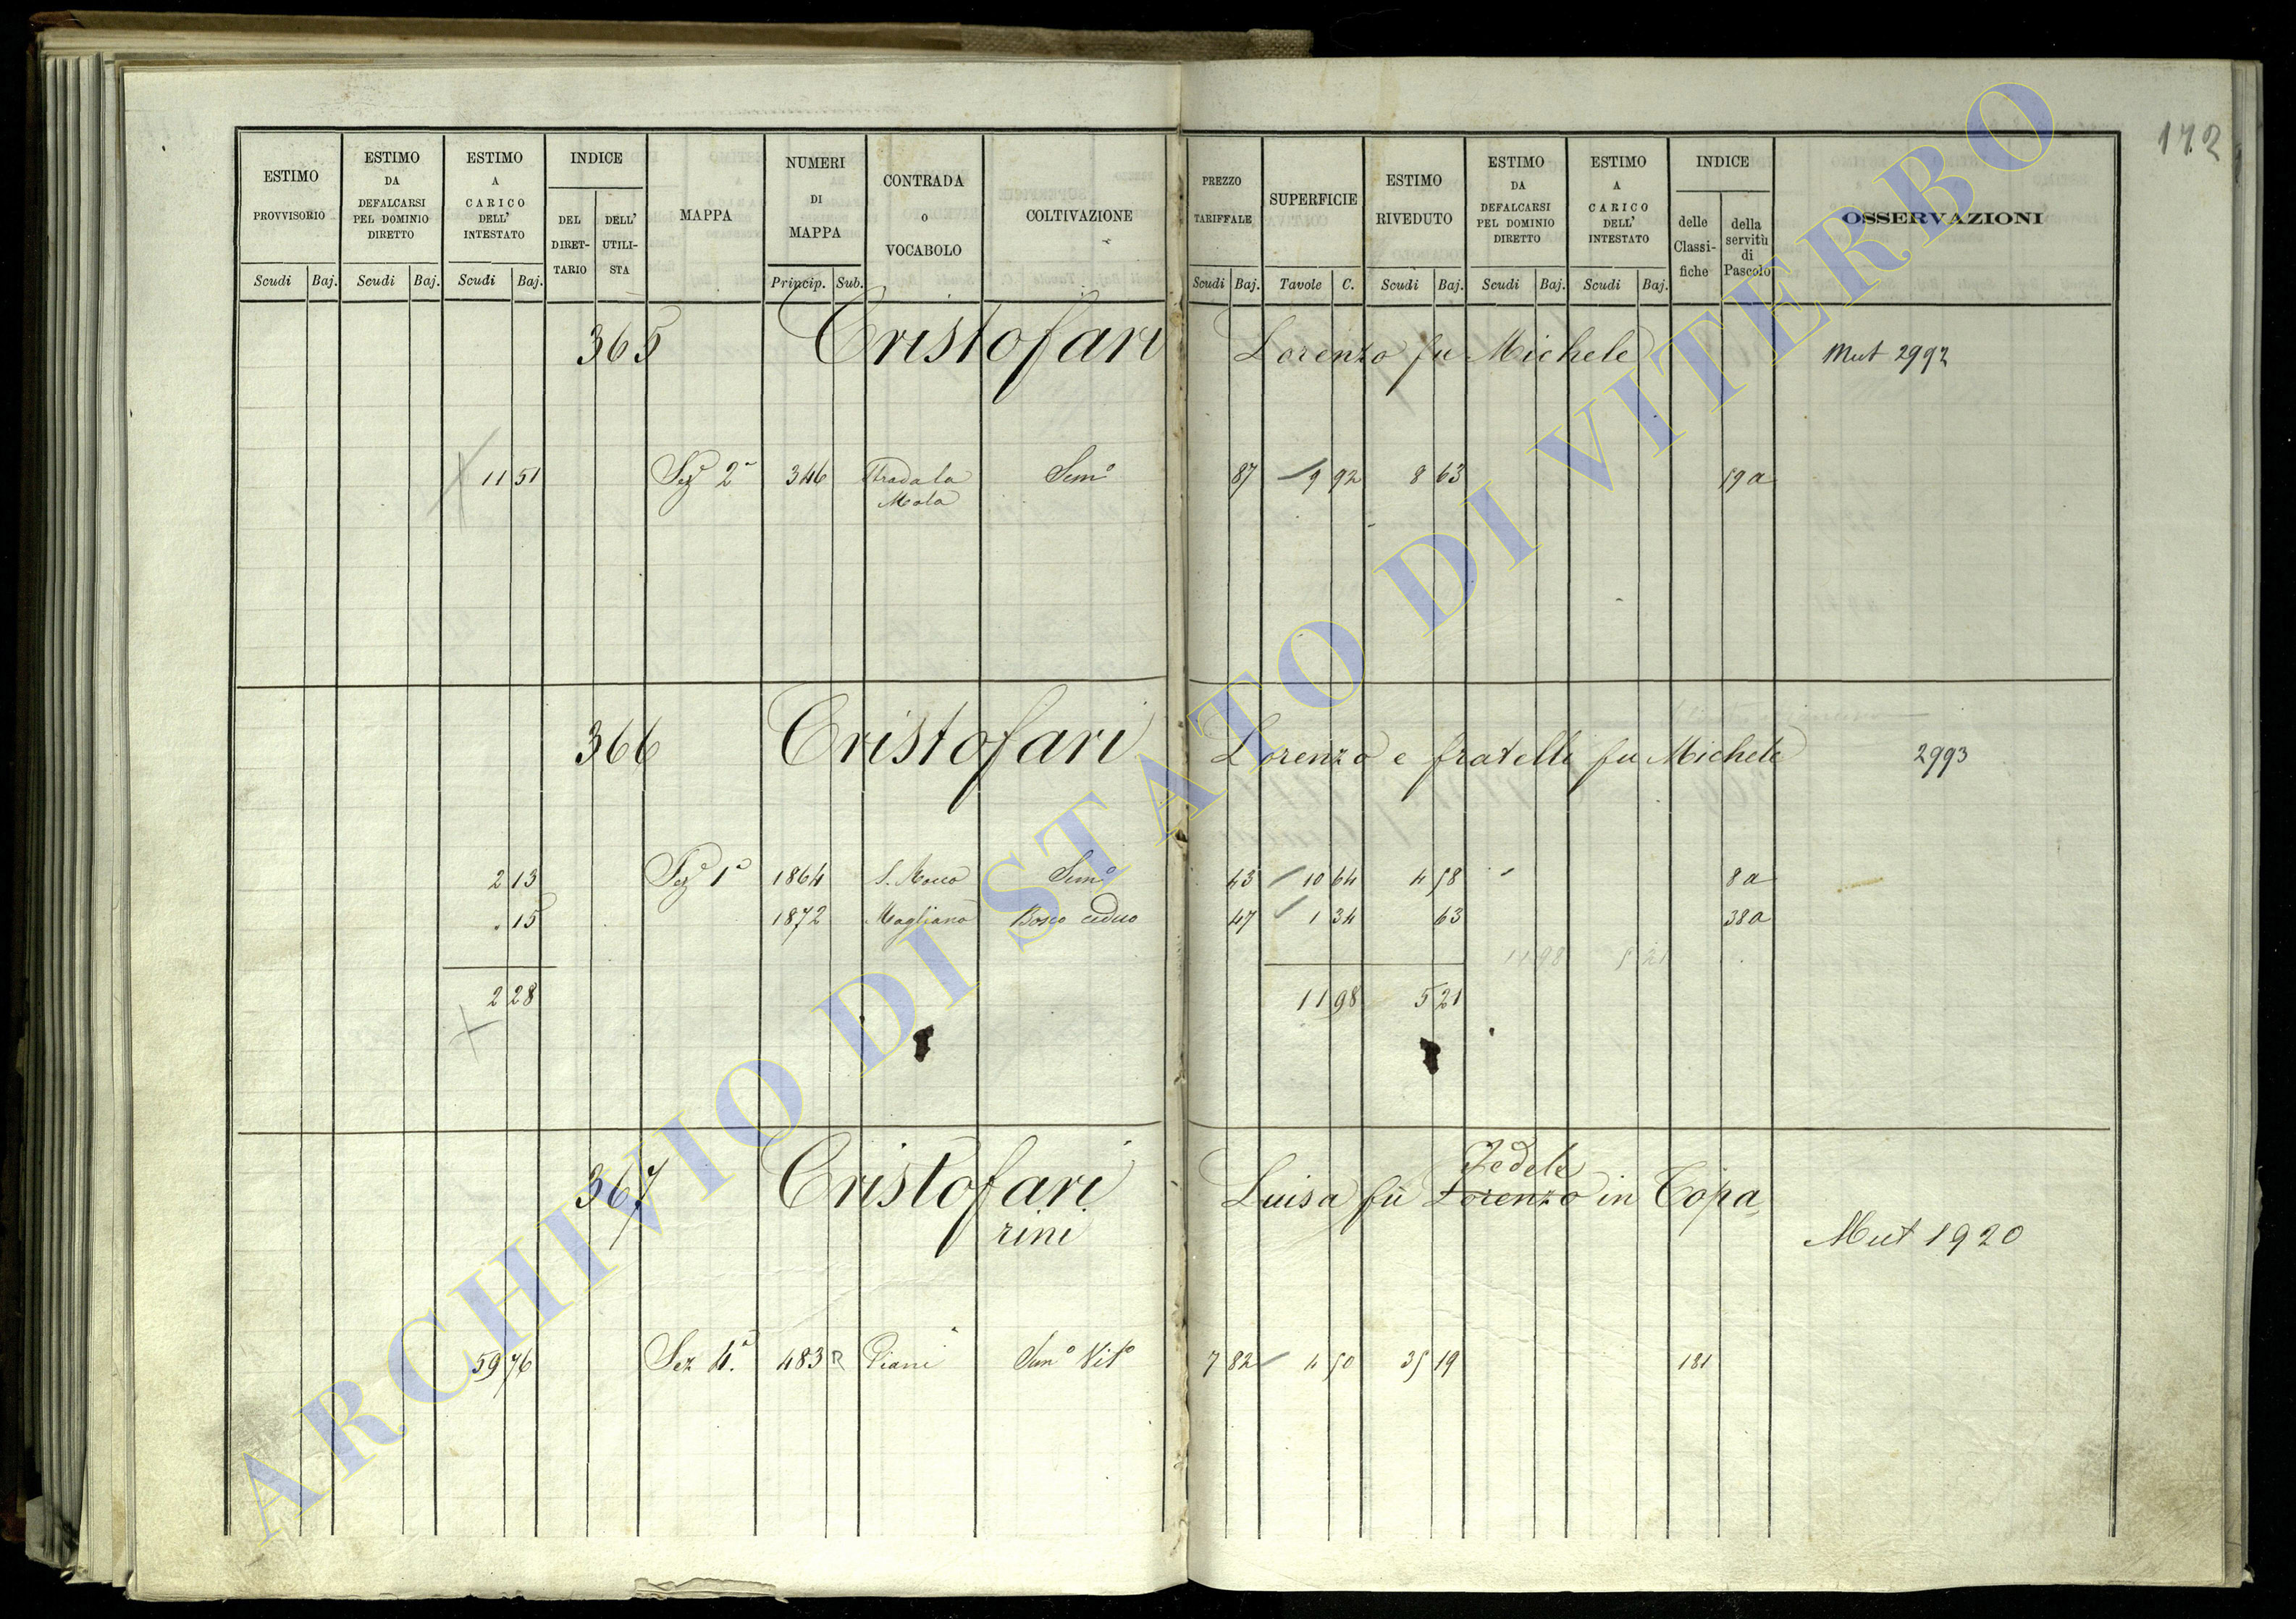 172
ESTIMO PROVVISORIO Scudi Baj.
ESTIMO DA DEFALCARSI PEL DOMINIO DIRETTO Scudi Baj.
ESTIMO A CARICO DELL' INTESTATO Scudi Baj.
INDICE DEL DIRETTARIO DELL' UTILISTA
MAPPA
NUMERI DI MAPPA Princip. Sub.
CONTRADA O VOCABOLO
COLTIVAZIONE
PREZZO TARIFFALE Scudi Baj.
SUPERFICIE Tavole C.
ESTIMO RIVEDUTO Scudi Baj.
ESTIMO DA DEFALCARSI PEL DOMINIO DIRETTO Scudi Baj.
ESTIMO A CARICO DELL' INTESTATO Scudi Baj.
INDICE delle Classifiche della servitù di Pascolo
OSSERVAZIONI
365 Cristofari Lorenzo fu Michele Mut 2992
11 51 Sez 2ª 346 Strada la Semº 87 9 92 8 63 59a
Mola
366 Cristofari Lorenzo e fratelli fu Michele 2993
2 13 Sez 1ª 1864 S. Rocco Semº 43 10 64 4 58 8a
. 15 1872 Magliano Bosco ceduo 47 1 34 63 38a
11 98 5 21
2 28 11 98 5 21
Fedele
367 Cristofari Luisa fu Lorenzo in Copa
rini Mut 1920
59 76 Sez 4ª. 483 R Piani Semº Vitº 7 82 4 50 35 19 181
ARCHIVIO DI STATO DI VITERBO